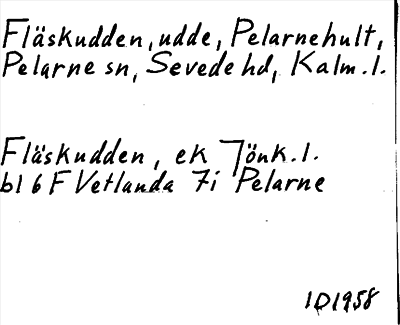 Fläskudden, udde, Pelarnehult,
Pelarne sn, Sevede hd, Kalm. l.
Fläskudden, ek Jönk. l.
bl 6 F Vetlanda 7i Pelarne
ID1958